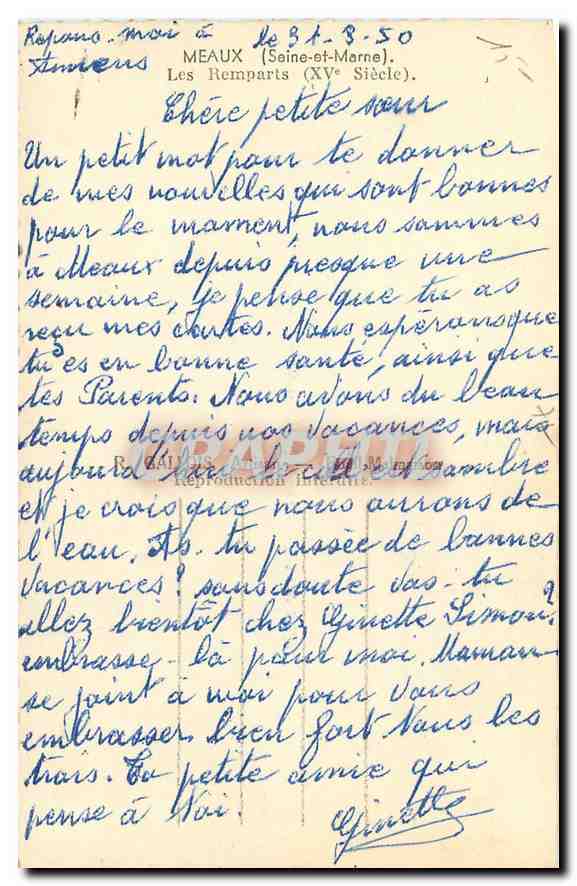 Repons-moi à le 31-8-50
Amiens
MEAUX (Seine-et-Marne).
Les Remparts (XVe Siècle).
Chère petite sœur
Un petit mot pour te donner
de mes nouvelles qui sont bonnes
pour le moment, nous sommes
à Meaux depuis presque une
semaine, je pense que tu as
reçu mes cartes. Nous espérons que
tu es en bonne santé, ainsi que
tes Parents. Nous avons du beau
temps depuis nos vacances, mais
aujourd'hui le est sombre
R. GALLOIS
Reproduction interdite.
et je crois que nous aurons de
l'eau. As-tu passée de bonnes
vacances? sans doute vas-tu
allez bientôt chez Ginette Simon?
embrasse-là pour moi. Maman
se joint à moi pour vous
embrasser bien fort vous les
trois. Ta petite amie qui
pense à Toi.
Ginette